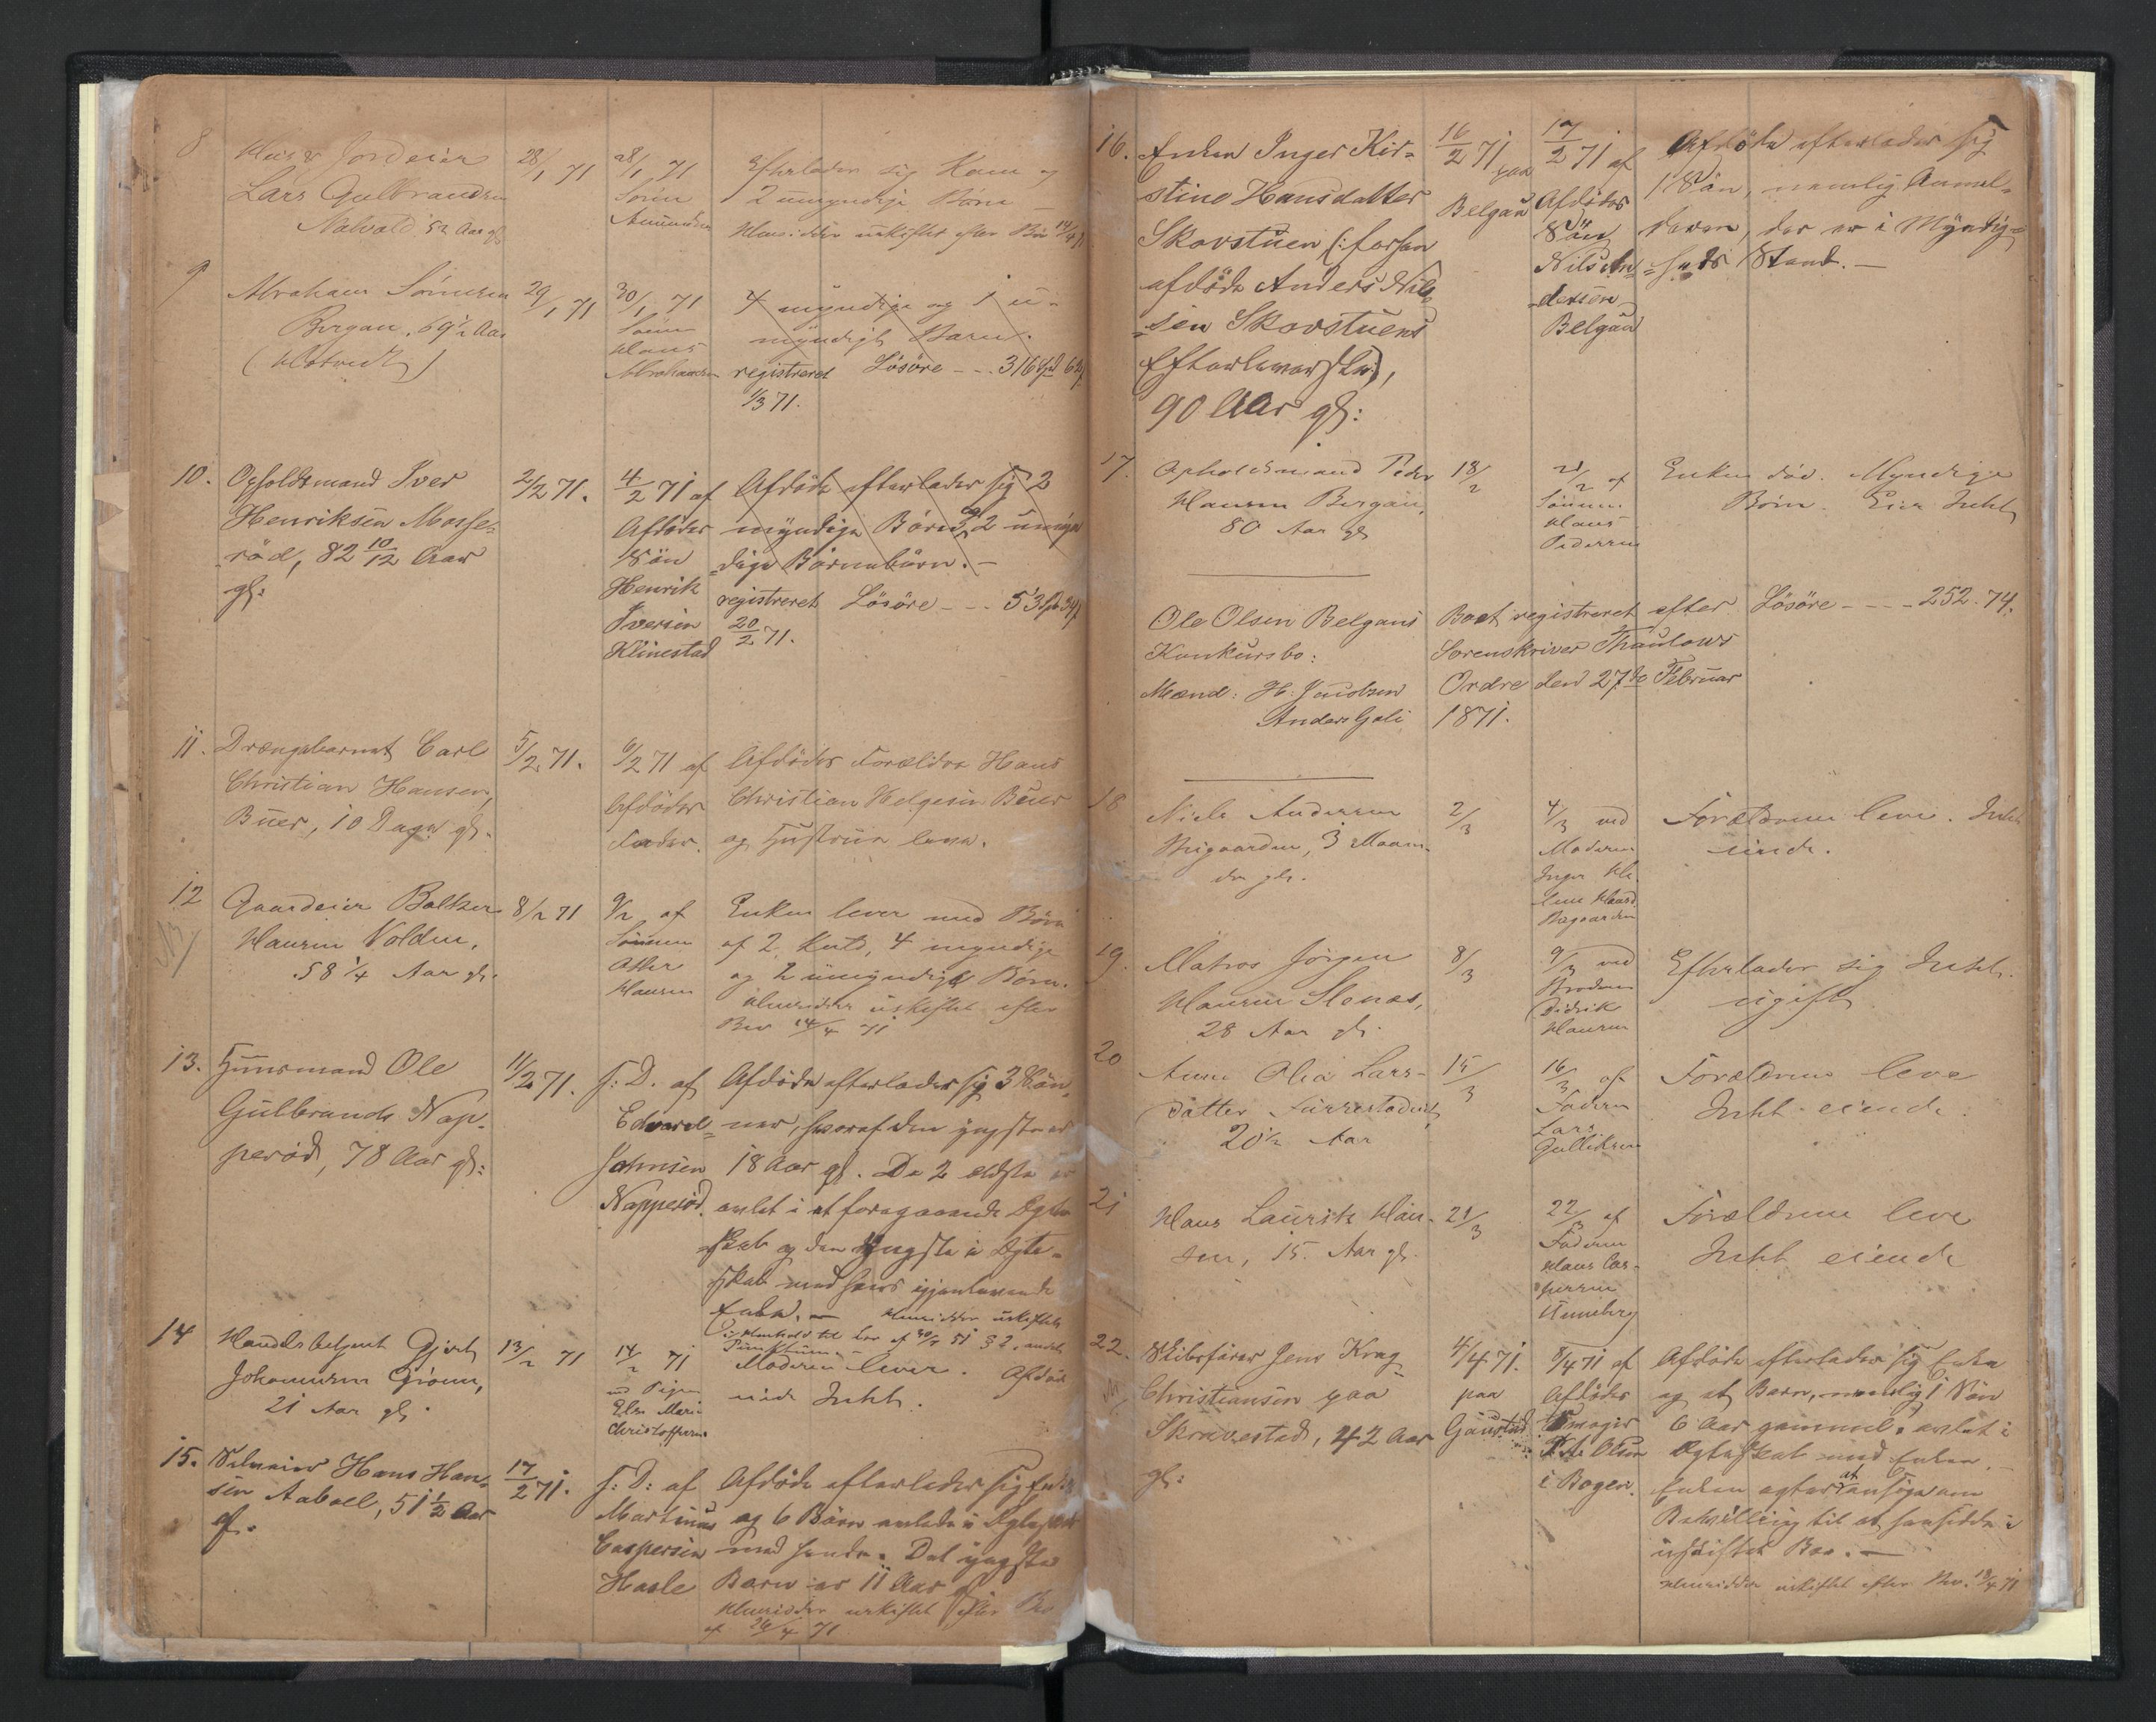 8
Huus & Jordeier
Lars Gulbrandsen
Nalvald 52 Aar gl.
28/1 71
28/1 71
Søren
Amundsen
Efterlader sig Kone og
2 umyndige Børn
Hensidder uskiftet efter Bev 14/4 71
9
Abraham Sørensen
Bergan, 69½ Aar
29/1 71
30/1 71
Sønnen
Hans
Abrahamsen
4 myndige og 1 u-
myndigt Barn.
registreret Løsøre - - . 316
1/3 71.
10.
Opholdsmand Iver
Henriksen Mosse-
röd, 82 10/12 Aar
gl:
2/2 71.
4/2 71 af
Afdødes
Sön
Henrik
Iversen
Klinestad
Afdöde efterlader sig 2
myndige Börn og 2 umyn-
dige Börnebörn. -
registreret Lösöre - - . 53
20/2 71.
11.
Drængebarnet Carl
Christian Hansen,
Buer, 10 Dage gl.
5/2 71.
6/2 71 af
Afdödes
Fader.
Afdödes Forældre Hans
Christian Helgesen Buer
og Hustrue leve.
12
Gaardeier Bolker
Hansen Volden,
58 ¼ Aar gl.
8/2 71
9/2 af
Sønnen
Hansen
Enken lever med Børn
af 2 Kuld, 4 myndige
og 2 umyndige Børn.
Hensidder uskiftet efter
Bev 14/4 71
13.
Huusmand Ole
Gulbrands. Nap-
peröd, 78 Aar gl:
11/2 71.
s: D. af
Edvard
Johnsen
Napperöd.
Afdöde efterlader sig 3 Sön-
ner, hvoraf den yngste er
18 Aar gl. De 2 ældste er
avlet i et foregaaende Ægte-
skab og den yngste i Ægte-
skab med hans igjenlevende
Enke. - Hensidder uskiftet
i Henhold til Lov af 30/7 51 § 2, andet
Punktum. -
14
Handelsbetjent Gjert
Johannesen Grönn,
21 Aar gl.
13/2 71
14/2 71
ved Pigen
Else Marie
Christoffersen
Moderen lever. Afdöde
eiede Intet.
15.
Selveier Hans Han-
sen Aaboel, 51 ½ Aar
gl.
17/2 71.
s: D: af
Martinus
Caspersen
Hasle
Afdöde efterlader sig Enke
og 6 Börn avlede i Ægteskab
med hende. Det yngste
Barn er 11 Aar gl.
Hensidder uskiftet efter Bev
af 24/4 71
16.
Enken Inger Kir-
stine Hansdatter
Skovstuen (: forhen
afdöde Anders Nil-
sen Skovstuens
Efterleverske:),
90 Aar gl:
16/2 71 paa
Belgau
17/2 71 af
Afdödes
Sön
Nils An-
dersen
Belgau
Afdöde efterlader sig
1 Sön, nemlig Anmel-
deren, der er i Myndig-
heds Stand. -
17.
Opholdsmand Peder
Hansen Bergan,
80 Aar gl
18/2
21/2 af
Sønnen
Hans
Pedersen
Enken död. Myndige
Börn. Eier Intet
Ole Olsen Belgaus
Konkursbo:
Mænd: H. Jacobsen
Anders Gali
Boet registreret efter
Sorenskriver Thaulows
Ordre den 27de Februar
1871.
Lösöre - - - - 252. 74.
18
Niels Andersen
Bugaarden, 3 Maane-
der gl.
2/3
4/3 ved
Moderen
Inger He-
lene Hansd
Bugaarden
Forældrene leve. Intet
eiende.
19.
Matros Jörgen
Hansen Stenas,
28 Aar gl.
8/3
9/3 ved
Broderen
Didrik
Hansen
Efterlader sig Intet.
ugift
20
Anne Olia Lars-
datter Furrestadeiet,
20½ Aar
15/3
16/3 af
Faderen
Lars
Gulliksen
Forældrene leve
Intet eiende.
21
Hans Laurits Han-
sen, 15. Aar gl.
21/3
22/3 af
Faderen
Hans Cas-
persen
Unneberg
Forældrene leve
Intet eiende
22.
Skibsförer Jens Krag
Christiansen paa
Skravestad, 42 Aar
gl:
4/4 71.
paa
Gaustad
8/4 71 af
Afdödes
Svoger
A. Olsen
i Bogen.
Afdöde efterlader sig Enke
og et Barn, nemlig 1 Sön
6 Aar gammel, avlet i
Ægteskab med Enken. -
Enken agter at ansöge om
Bevilling til at hensidde i
uskiftet Boe. -
Hensidder uskiftet efter Bev. 19/4 71